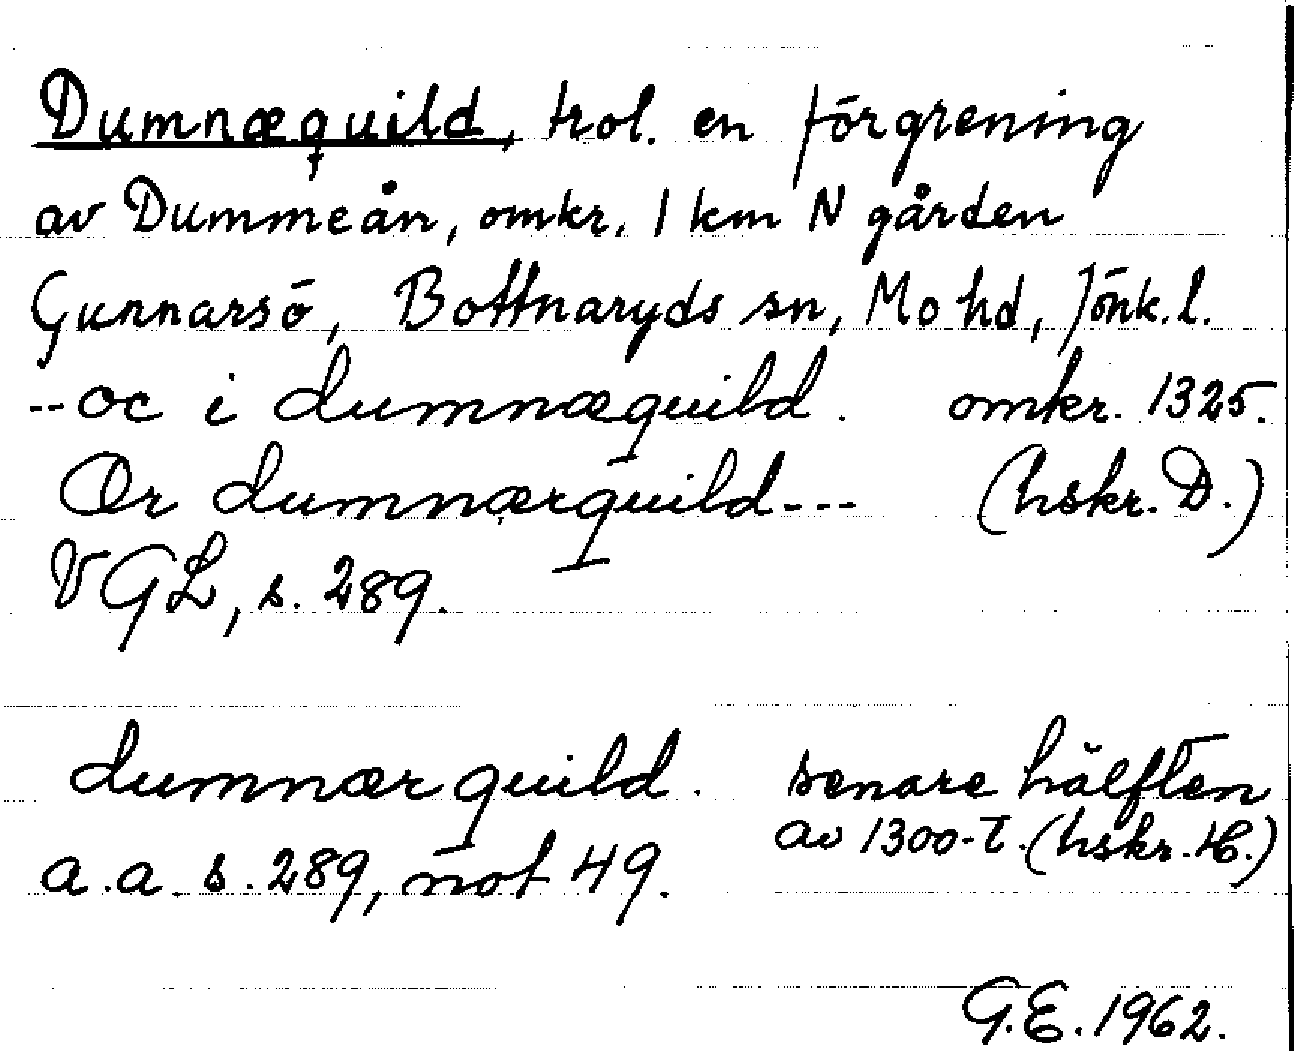 Dumnæquild, trol. en förgrening
av Dummeån, omkr. 1 km N gården
Gunnarsö, Bottnaryds sn, Mo hd, Jönk. l.
-- oc i dumnæquild. omkr. 1325.
Ør dumnærquild --- (hskr. D.)
VGL, s. 289.
dumnær quild. senare hälften
av 1300-t. (hskr. H.)
a.a. s. 289, not 49.
G.E. 1962.